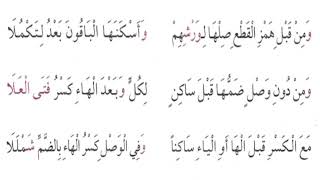 وَمِنْ قَبْلِ هَمْزِ الْقَطْعِ صِلْهَا لِوَرْشِهِمْ وَأَسْكَنَهَا الْبَاقُونَ بَعْدُ لِتَكْمُلَا
وَمِنْ دُونِ وَصْلٍ ضُمَّهَا قَبْلَ سَاكِنٍ لِكُلٍّ وَبَعْدَ الْهَاءِ كَسْرُ فَتَى الْعَلَا
مَعَ الْكَسْرِ قَبْلَ الْهَا أَوِ الْيَاءِ سَاكِناً وَفِي الْوَصْلِ كَسْرُ الْهَاءِ بِالضَّمِّ شَمْلَلَا